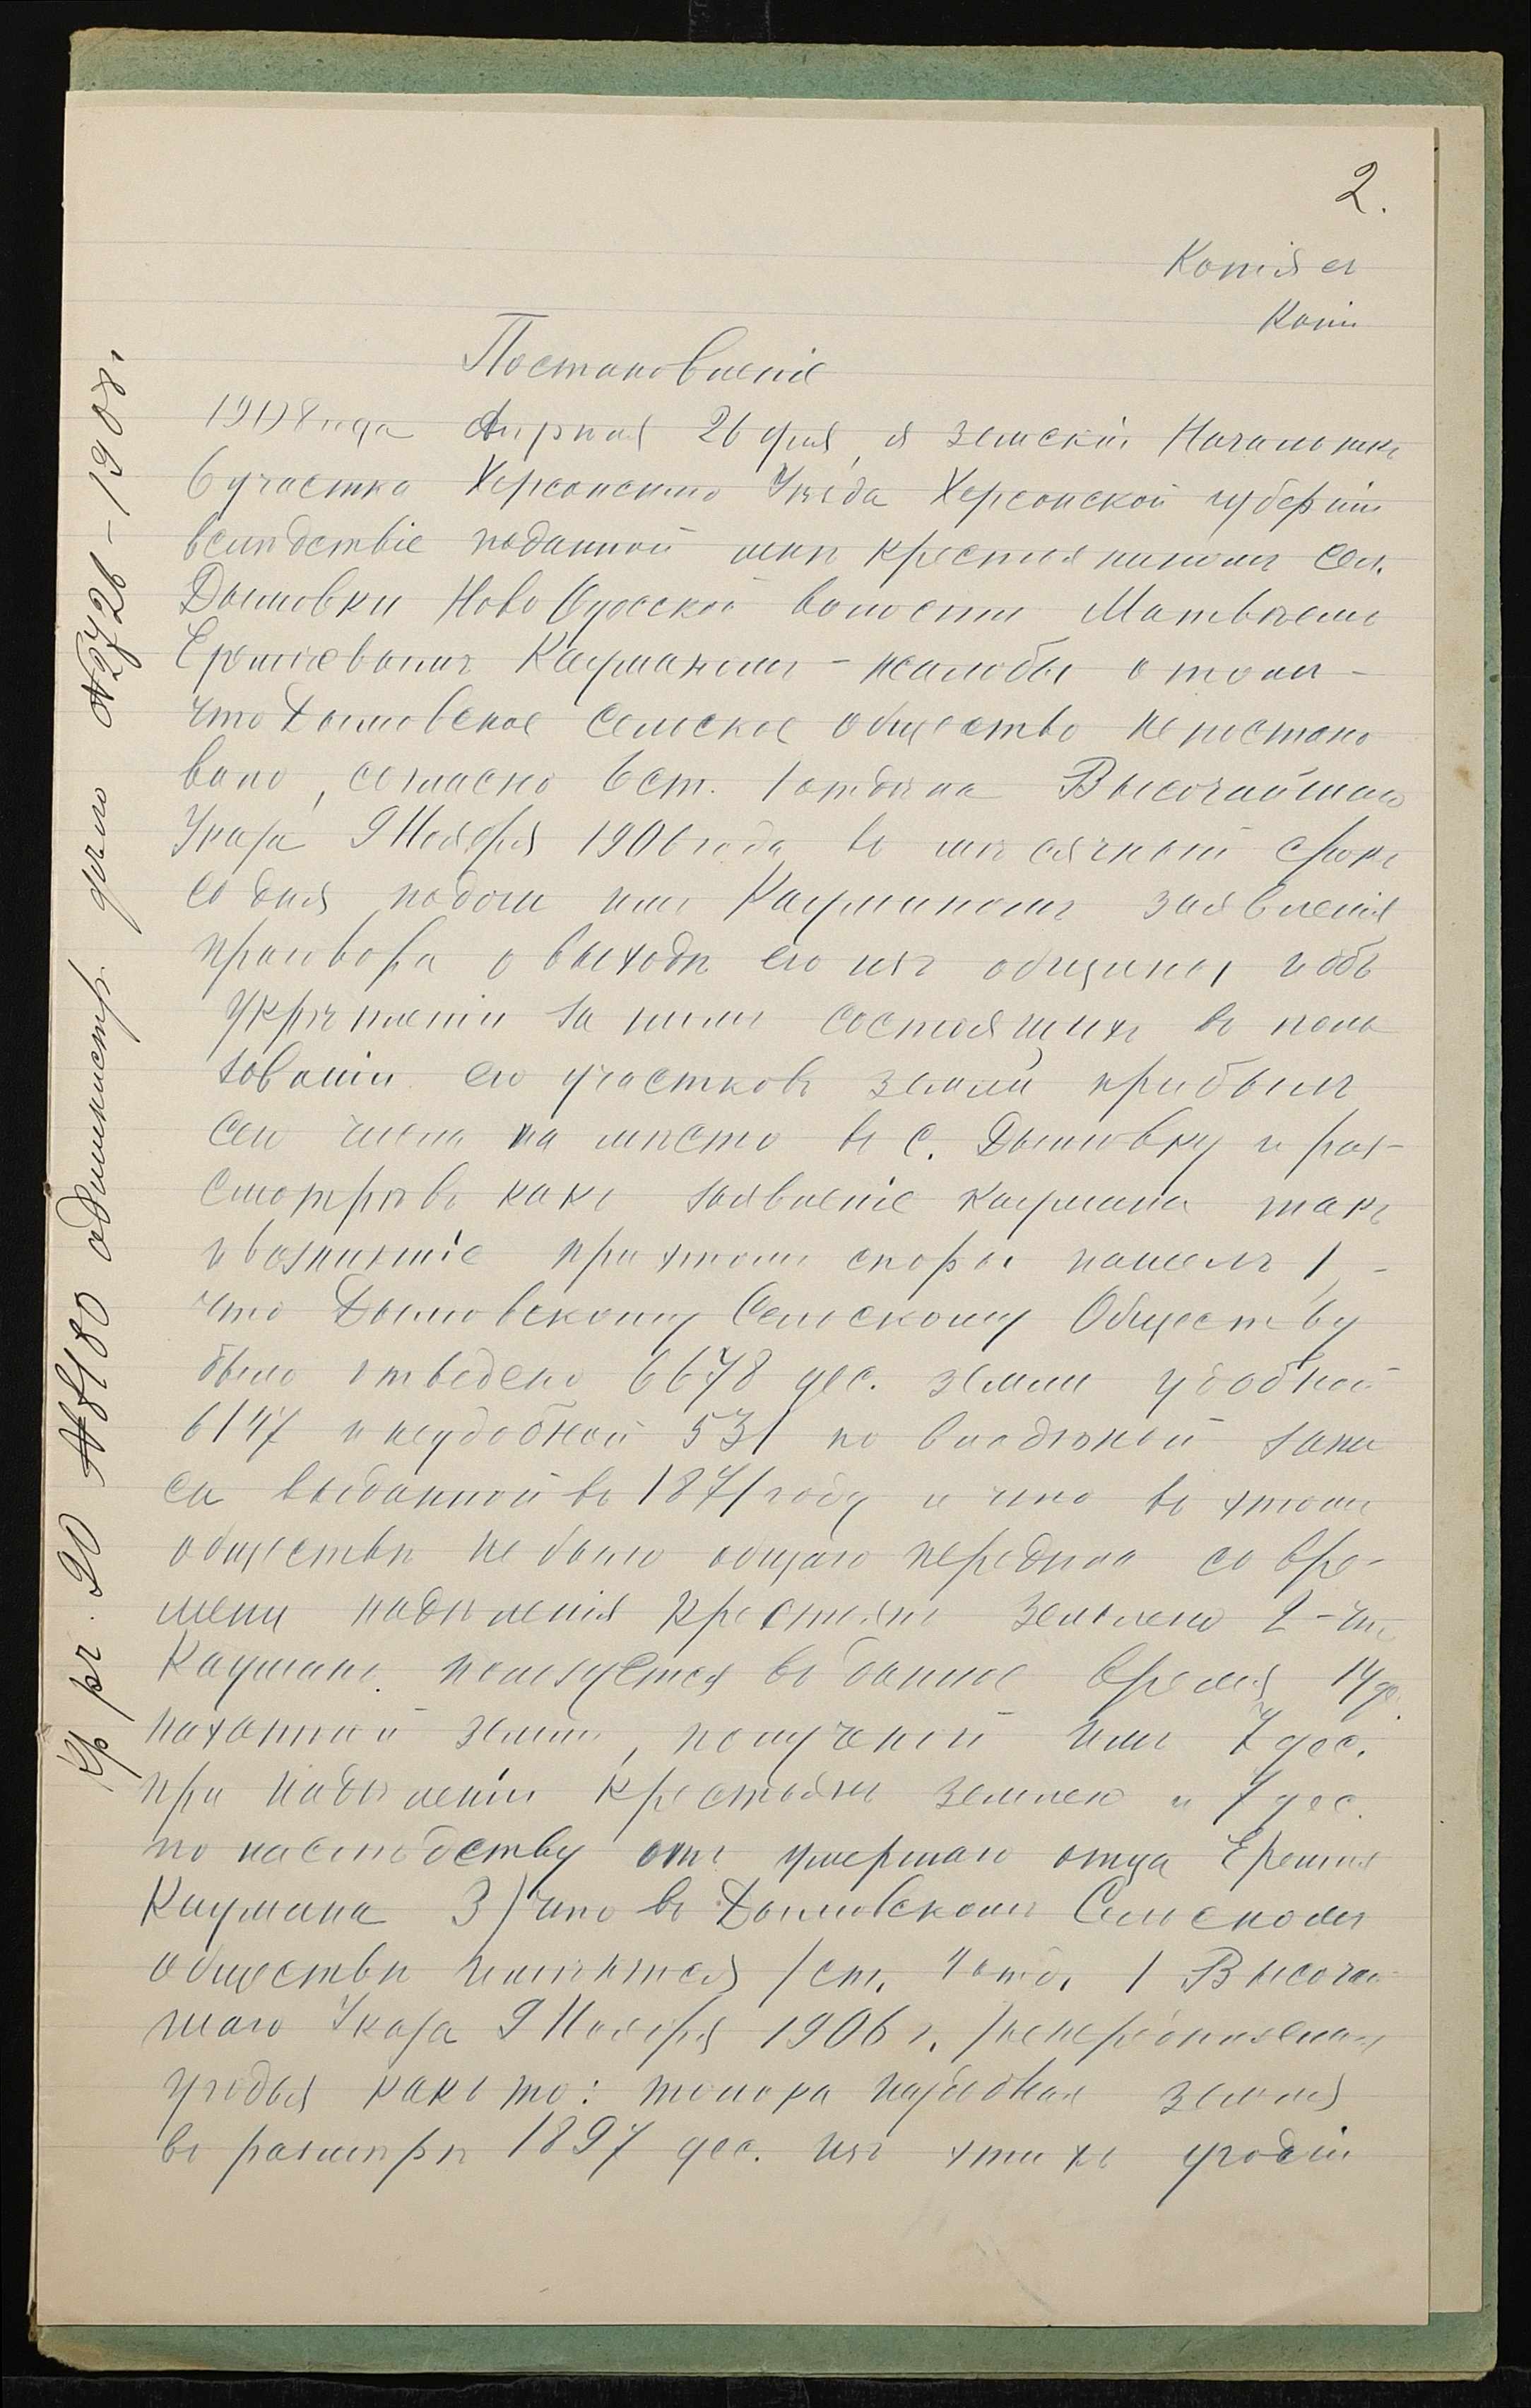 2.
Копія съ
Копіи
Постановленіе
1908 года Апрѣля 26 дня, я Земскій Начальникъ
6 участка Херсонскаго Уѣзда Херсонской губерніи
вслѣдствіе поданной мнѣ крестьяниномъ сел.
Дымовки Ново Одесской волости Матвѣемъ
Каушаномъ - жалобы о томъ -
что Дымовское Сельское общество не постано
вило, согласно 6 ст. 1 отдѣла Высочайшаго
Указа 9 Ноября 1906 года въ мѣсячный срокъ
со дня подачи имъ Каушаномъ заявленія
приговора о выходѣ его изъ общины, и объ
укрѣпленіи за нимъ состоящихъ въ поль
зованіи его участковъ земли прибылъ
сего числа на мѣсто въ с. Дымовку и раз-
смотрѣвъ какъ заявленіе Каушана такъ
и возникшіе при этомъ споры нашелъ 1, -
что Дымовскому Сельскому Обществу
было отведено 6678 дес. земли удобной
6147 и неудобной 531 по владѣнной запи
си выданной въ 1871 году и что въ этомъ
обществѣ не было общаго передѣла со вре-
мени надѣленія крестьянъ землею 2 - что
Каушанъ пользуется въ данное время 14 де.
пахатной земли, полученой имъ 7 дес.
при надѣленіи крестьянъ землею и 7 дес.
по наслѣдству отъ умершаго отца Еремія
Каушана 3) что въ Дымовскомъ Сельскомъ
обществѣ имѣются /ст. 4 отд. 1 Высочай
шаго Указа 9 Ноября 1906 г. /непередѣляемыя
угодья какъ то: толока надобная земля
въ размѣрѣ 1897 дес. изъ этихъ угодій
Кр рг. 20 № 180 администр. дѣло № 2726 - 1908 г.